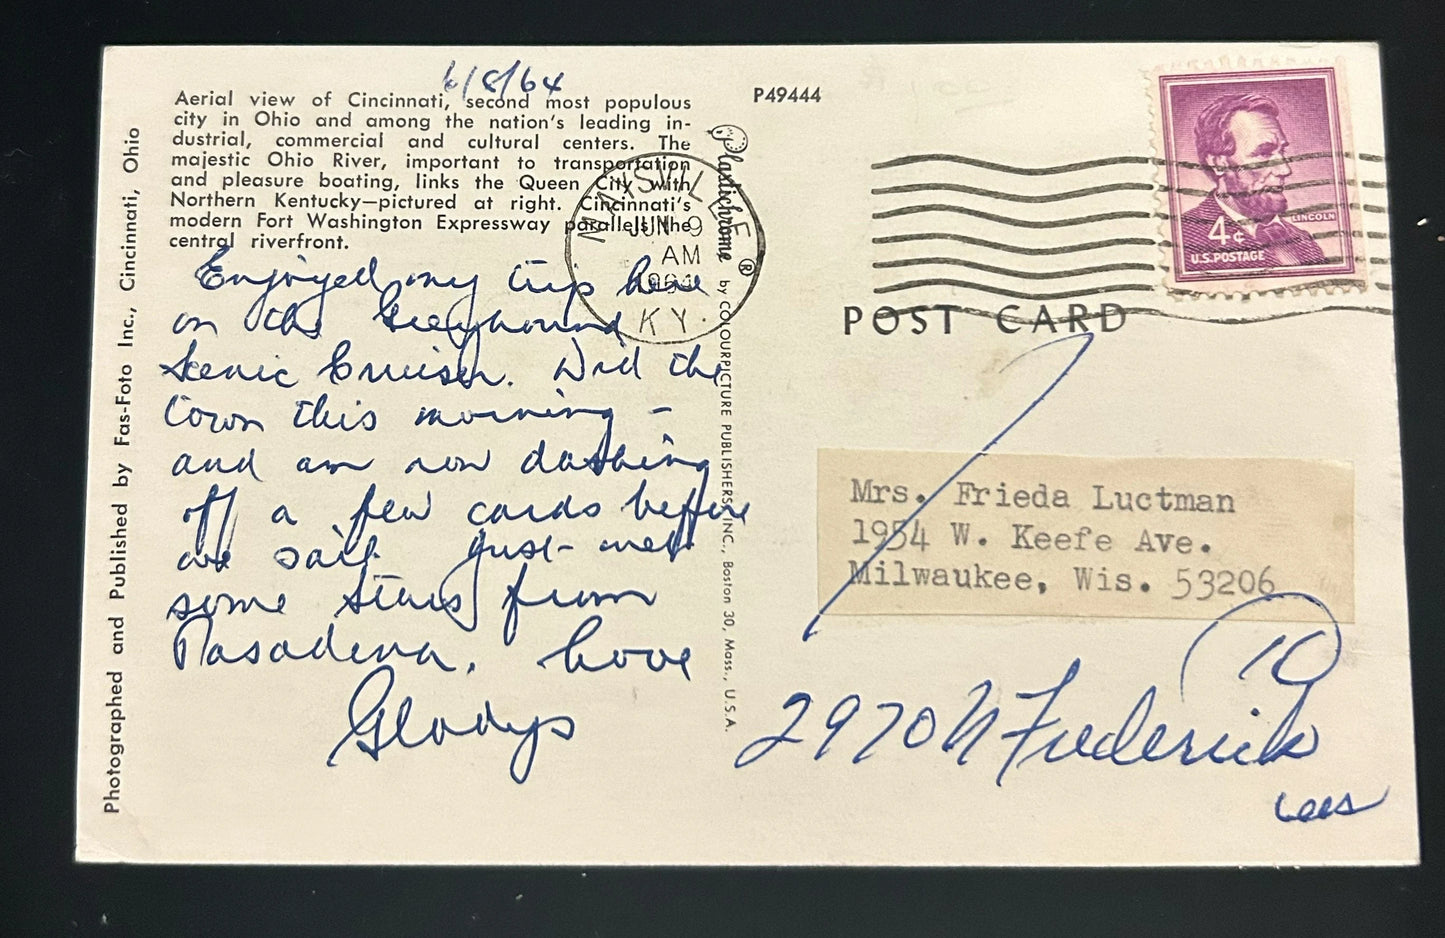 6/8/64
Aerial view of Cincinnati, second most populous
city in Ohio and among the nation's leading in-
dustrial, commercial and cultural centers. The
majestic Ohio River, important to transportation
and pleasure boating, links the Queen City with
Northern Kentucky—pictured at right. Cincinnati's
modern Fort Washington Expressway parallels the
central riverfront.
Enjoyed my trip here
on the Greyhound
Scenic Cruiser. Did the
town this morning –
and am now dashing
off a few cards before
we sail. Just met
some
from
Pasadena. Love
Gladys
Photographed and Published by Fas-Foto Inc., Cincinnati, Ohio
Plastichrome ® by COLOURPICTURE PUBLISHERS, INC., Boston 30, Mass., U.S.A.
P49444
MAYSVILLE
JUN 9
AM
1964
KY.
LINCOLN
4¢
U.S. POSTAGE
POST CARD
Mrs. Frieda Luctman
1954 W. Keefe Ave.
Milwaukee, Wis. 53206
10
2970 N Frederick